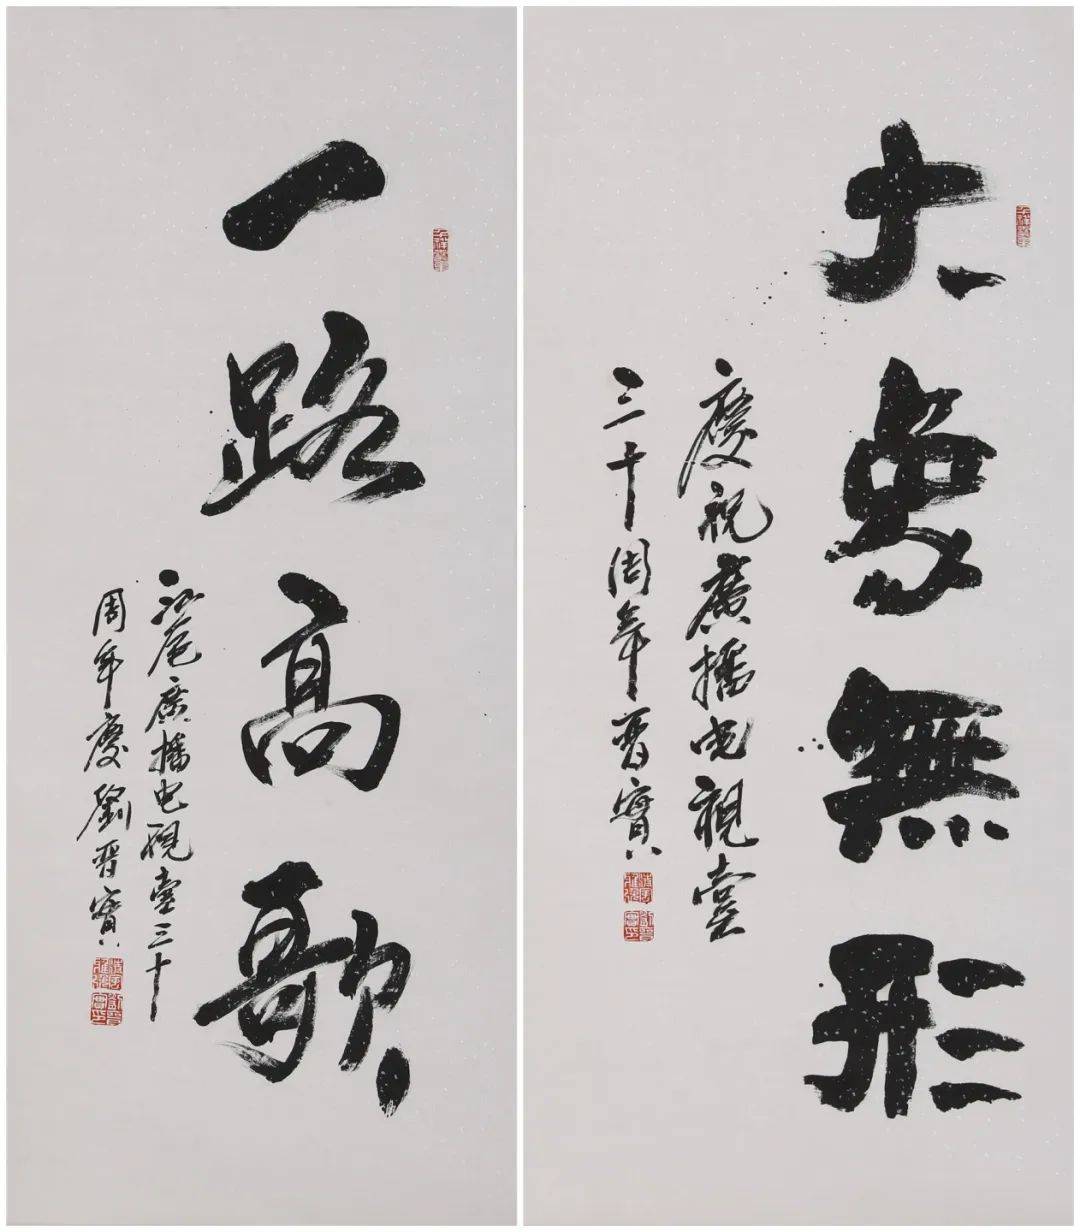 大象無形
慶祝廣播电視臺
三十周年晋寶
一路高歌
汕尾廣播电視臺三十
周年慶劉晋寶